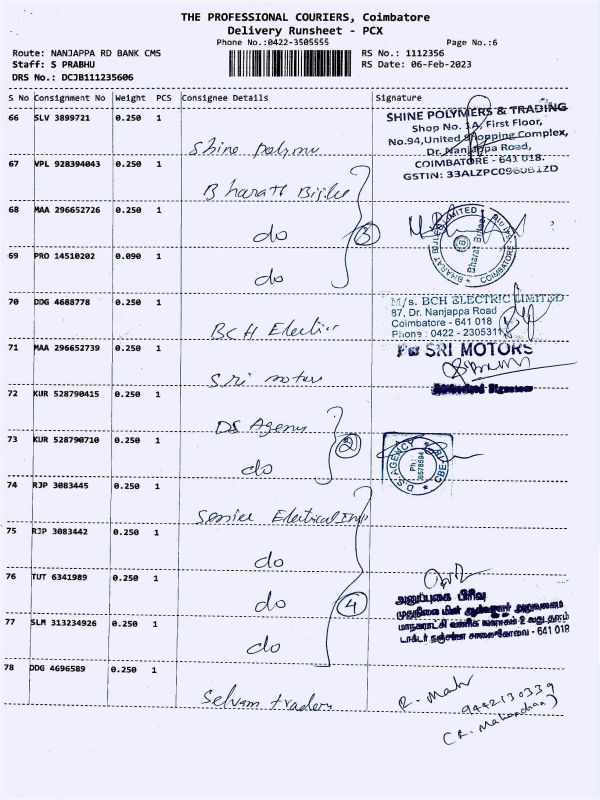 THE PROFESSIONAL COURIERS, Coimbatore
Delivery Runsheet - PCX
Phone No.:0422-3505555
Page No.:6
Route: NANJAPPA RD BANK CMS
RS No.: 1112356
Staff: S PRABHU
RS Date: 06-Feb-2023
DRS No.: DCJB111235606
S No Consignment No Weight PCS Consignee Details Signature
66 SLV 3899721 0.250 1
Shine polymer
SHINE POLYMERS & TRADING
Shop No. 1A, First Floor,
No.94,United Shopping Complex,
Dr. Nanjappa Road,
COIMBATORE - 641 018.
GSTIN: 33ALZPC0960B1ZD
67 VPL 928394043 0.250 1
Bharath Bijlee
68 MAA 296652726 0.250 1
do
3
BHARAT BIJLEE LIMITED
COIMBATORE
69 PRO 14510202 0.090 1
do
70 DDG 4688778 0.250 1
BCH Electric
M/s. BCH ELECTRIC LIMITED
87, Dr. Nanjappa Road
Coimbatore - 641 018
Phone : 0422 - 2305311
71 MAA 296652739 0.250 1
Sri motors
For SRI MOTORS
Authorised Signatory
72 KUR 528790415 0.250 1
DS Agency
73 KUR 528790710 0.250 1
do
2
D.S.AGENCY
CBE
Ph:
74 RJP 3083445 0.250 1
Senior Electrical Insp
75 RJP 3083442 0.250 1
do
76 TUT 6341989 0.250 1
do
4
அனுப்புகை பிரிவு
முதுநிலை மின் ஆய்வாளர் அலுவலகம்
மாநகராட்சி வணிக வளாகம் 2 வது தளம்
டாக்டர் நஞ்சப்பா சாலை கோவை - 641 018
77 SLM 313234926 0.250 1
do
78 DDG 4696589 0.250 1
Selvam traders
R. Mah
9442130339